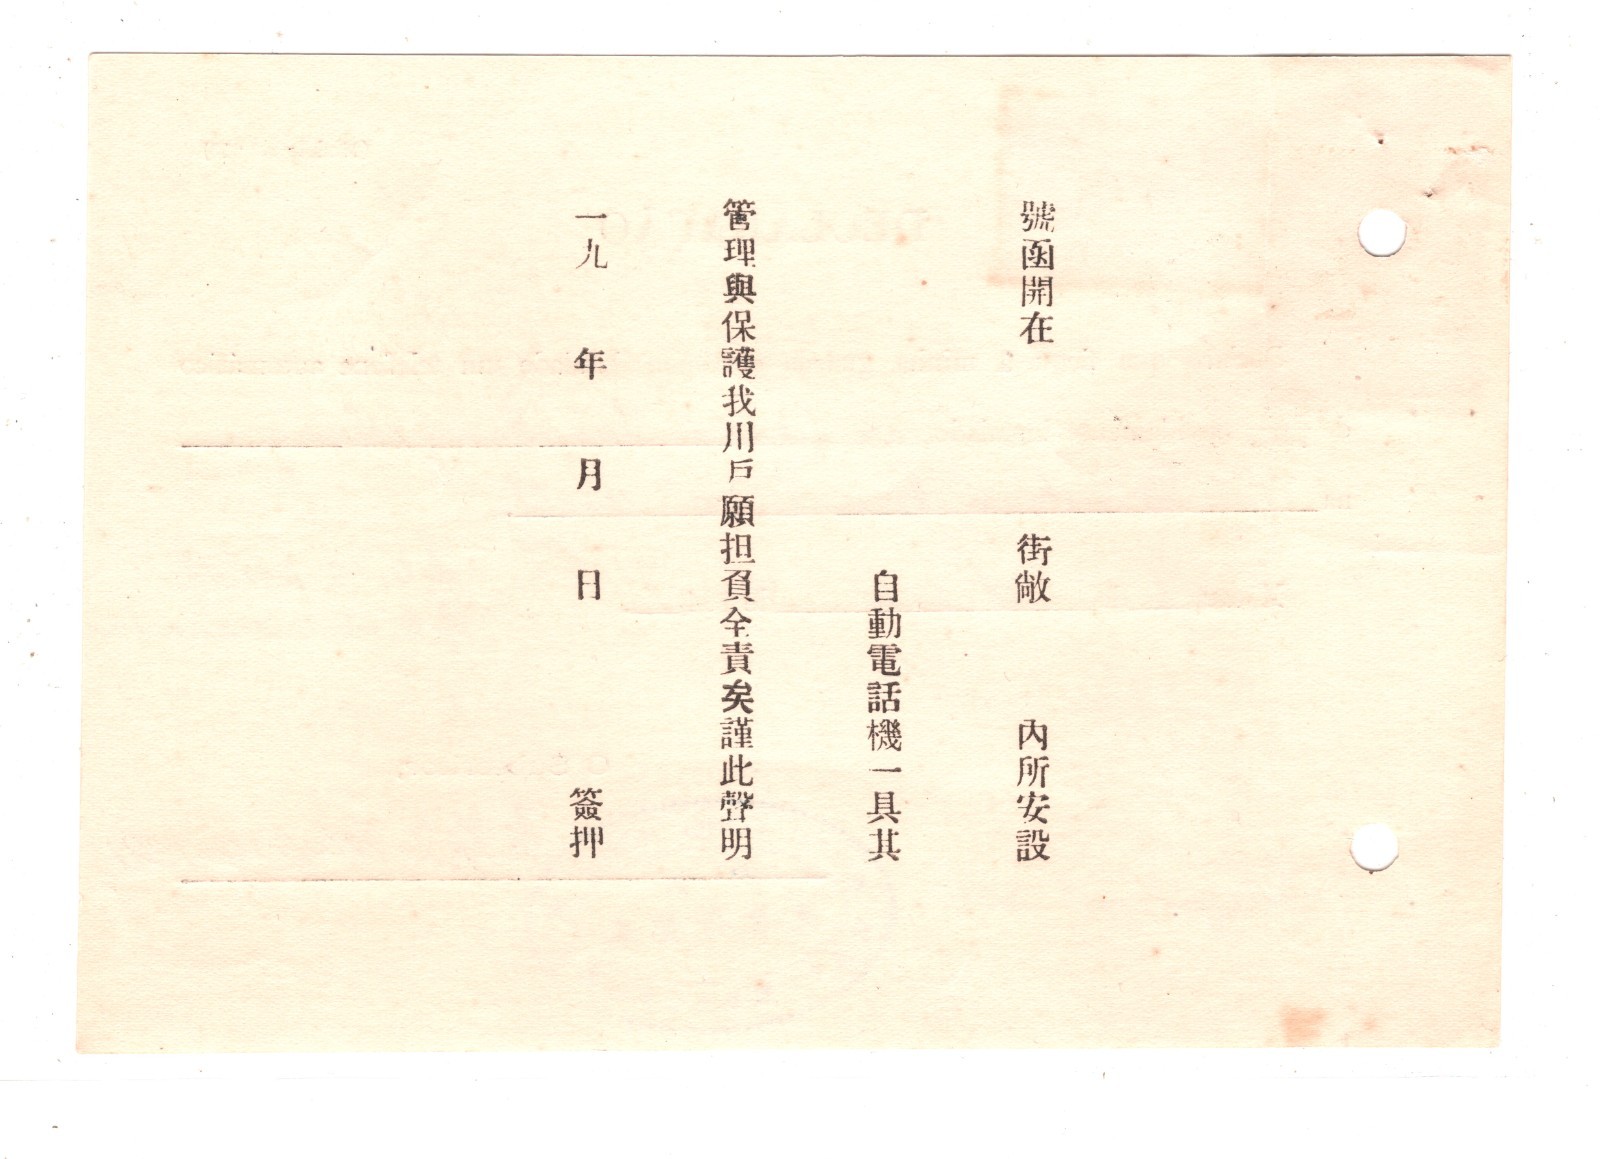 號函開在 街敝 內所安設
自動電話機一具其
管理與保護我川戶願担負全責矣謹此聲明
一九 年 月 日 簽押